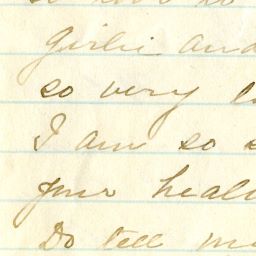 Girlie and
so very
I am so s
your heal
Do tell m